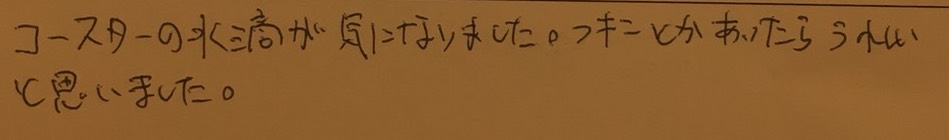 コースターの水滴が気になりました。フキンとかあったらうれしい
と思いました。